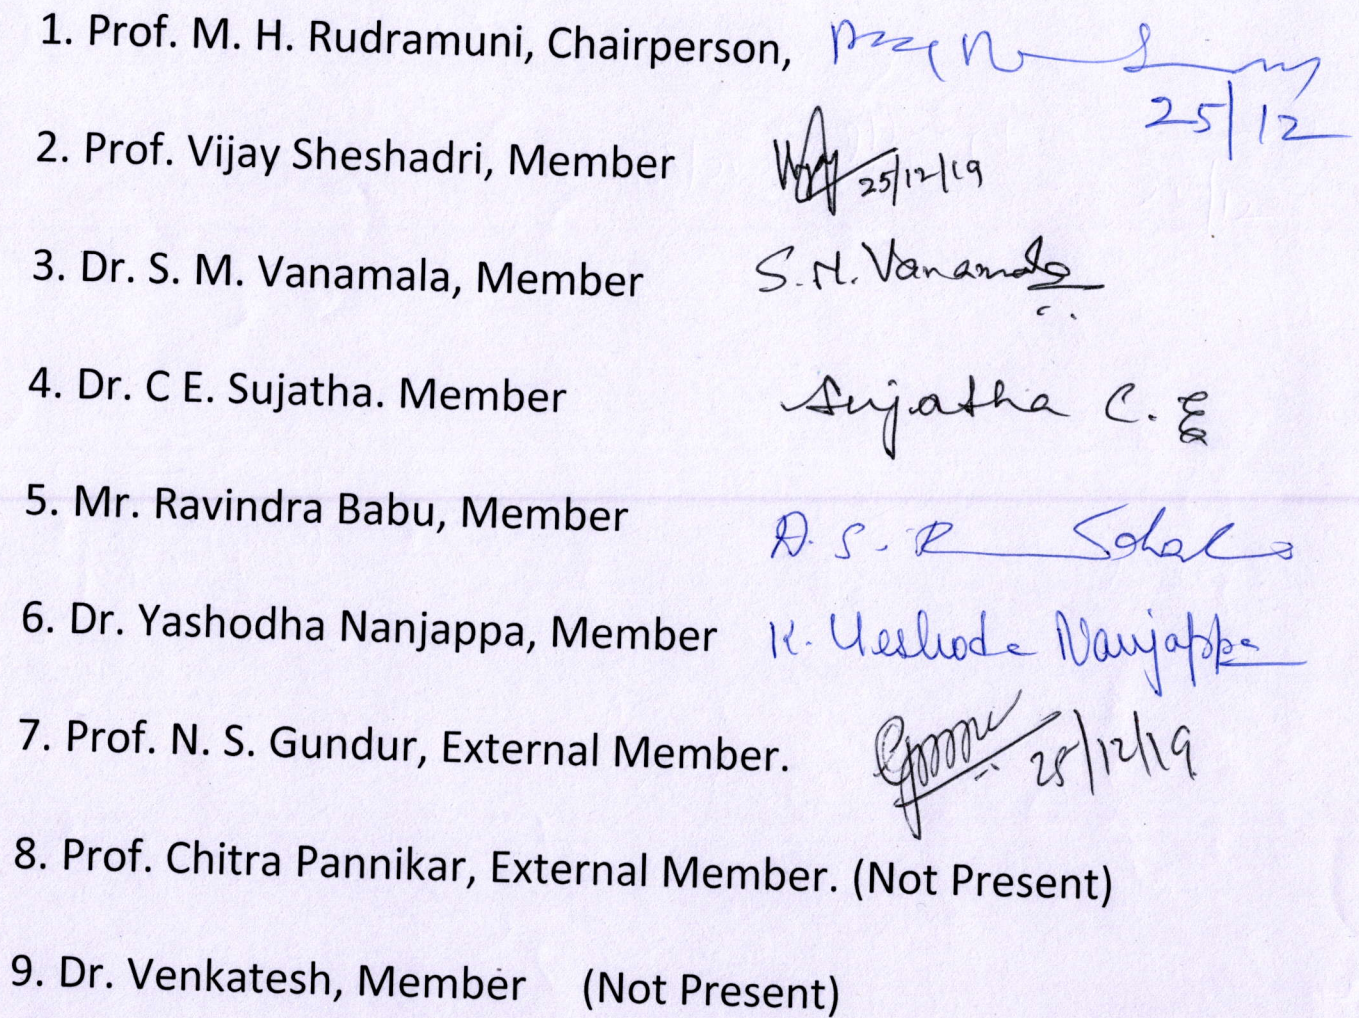 1. Prof. M. H. Rudramuni, Chairperson,
25/12
2. Prof. Vijay Sheshadri, Member 25/12/19
3. Dr. S. M. Vanamala, Member S.M. Vanamala
4. Dr. C E. Sujatha. Member Sujatha C. E
5. Mr. Ravindra Babu, Member A. S. R
6. Dr. Yashodha Nanjappa, Member K. Yeshoda Nanjappa
7. Prof. N. S. Gundur, External Member. 25/12/19
8. Prof. Chitra Pannikar, External Member. (Not Present)
9. Dr. Venkatesh, Member (Not Present)